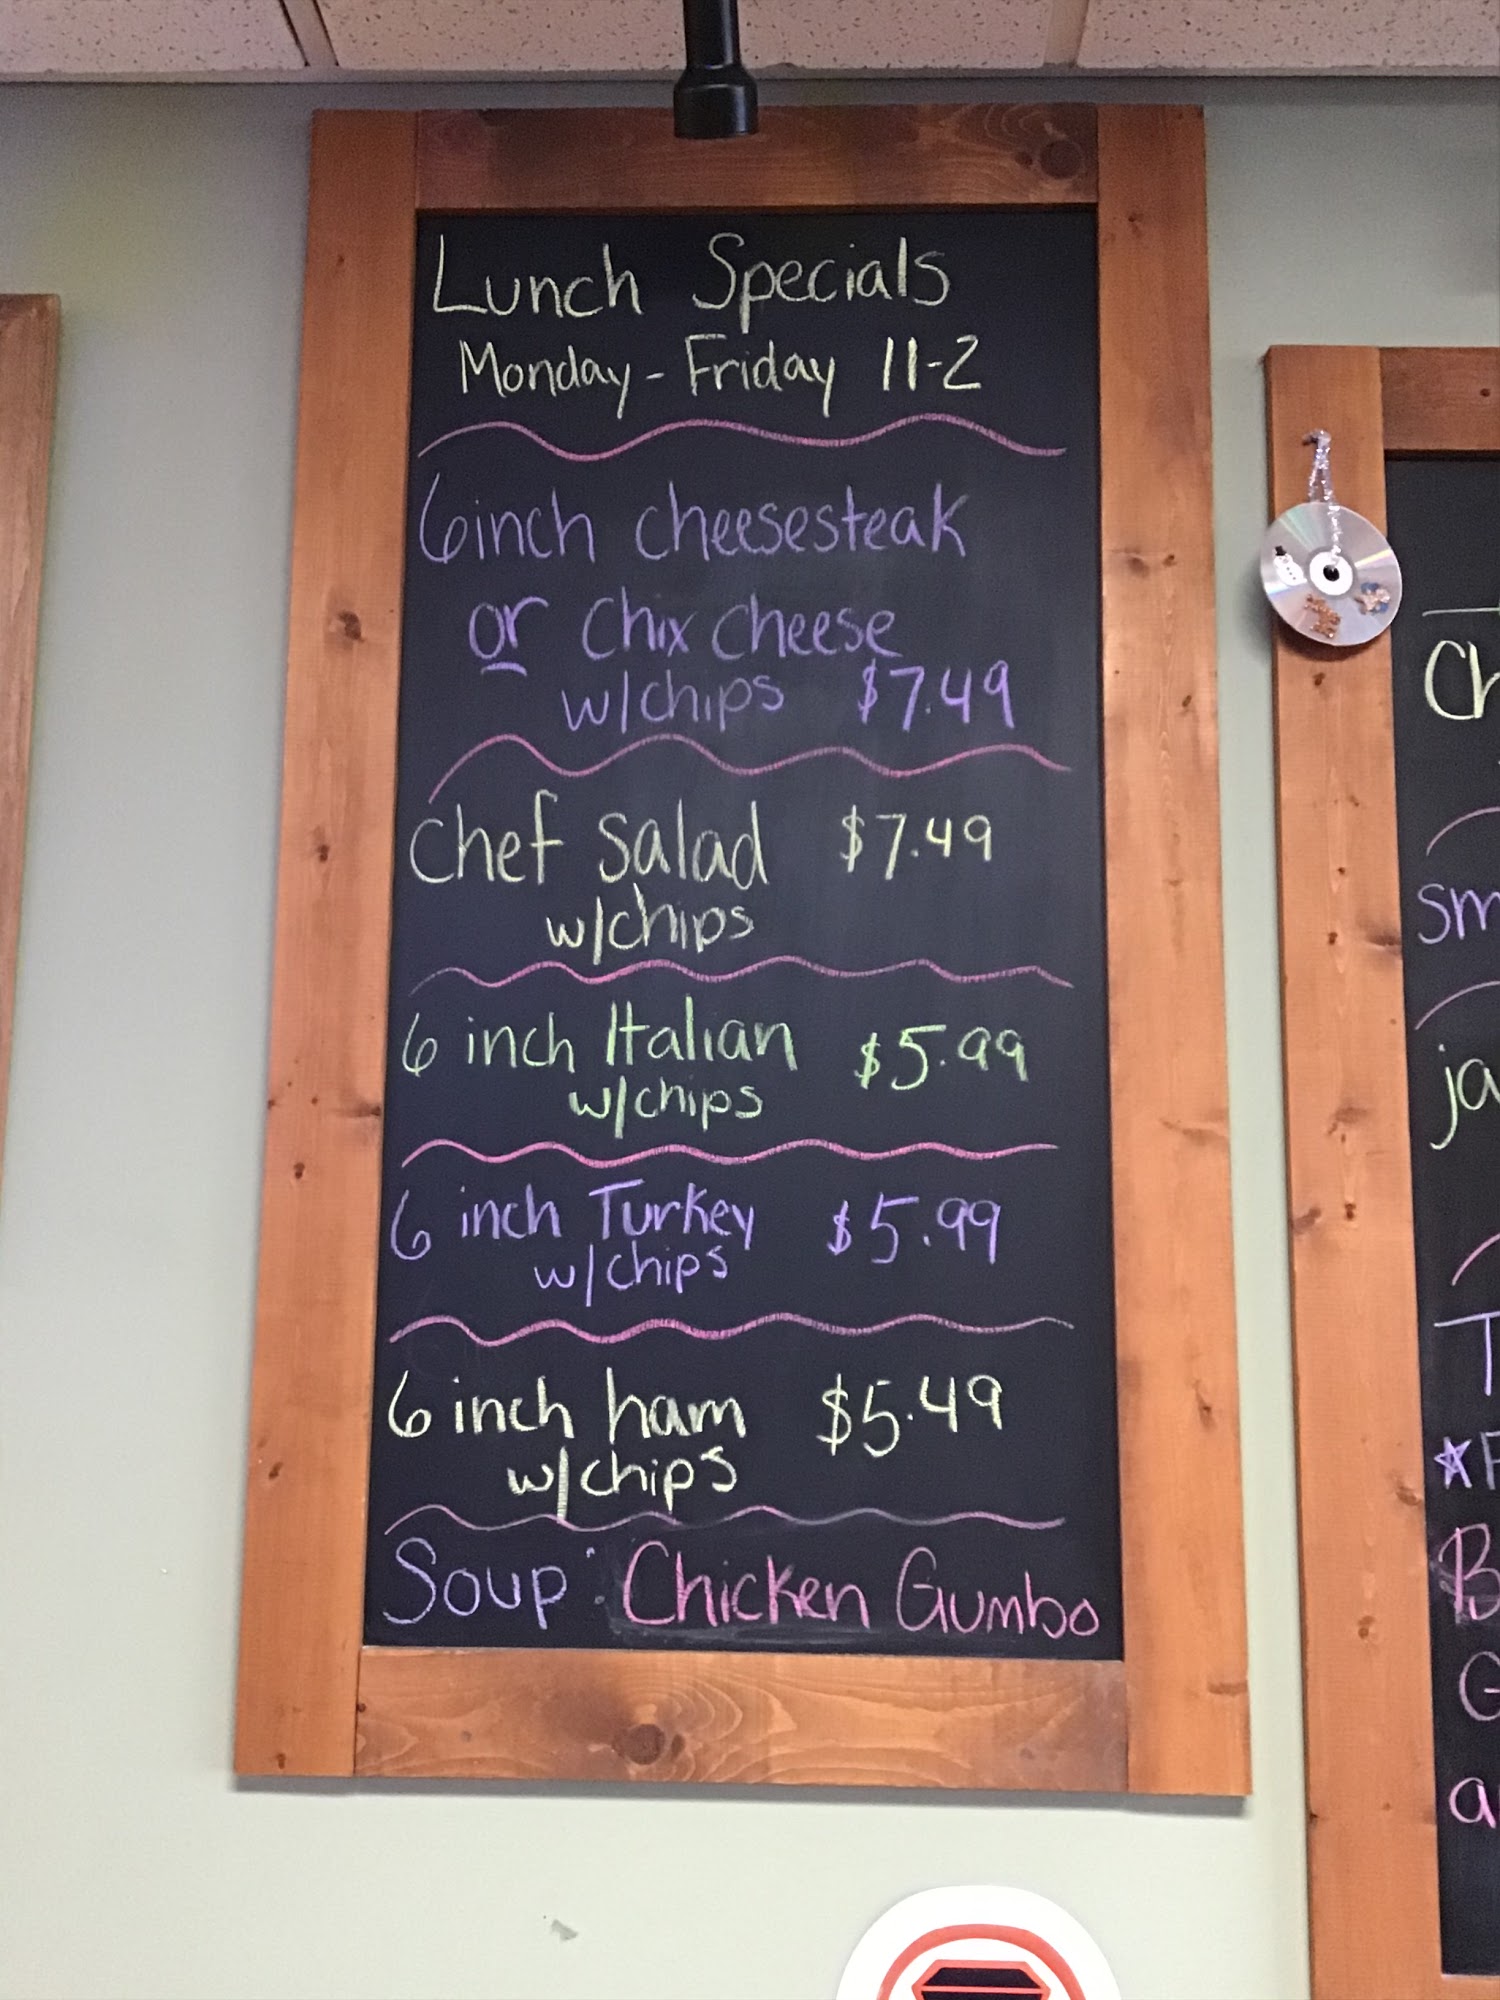 Lunch Specials
Monday - Friday 11-2
6inch cheesesteak
or chix cheese
w/chips $7.49
Chef Salad $7.49
w/chips
6 inch Italian $5.99
w/chips
6 inch Turkey $5.99
w/chips
6 inch ham $5.49
w/chips
Soup: Chicken Gumbo